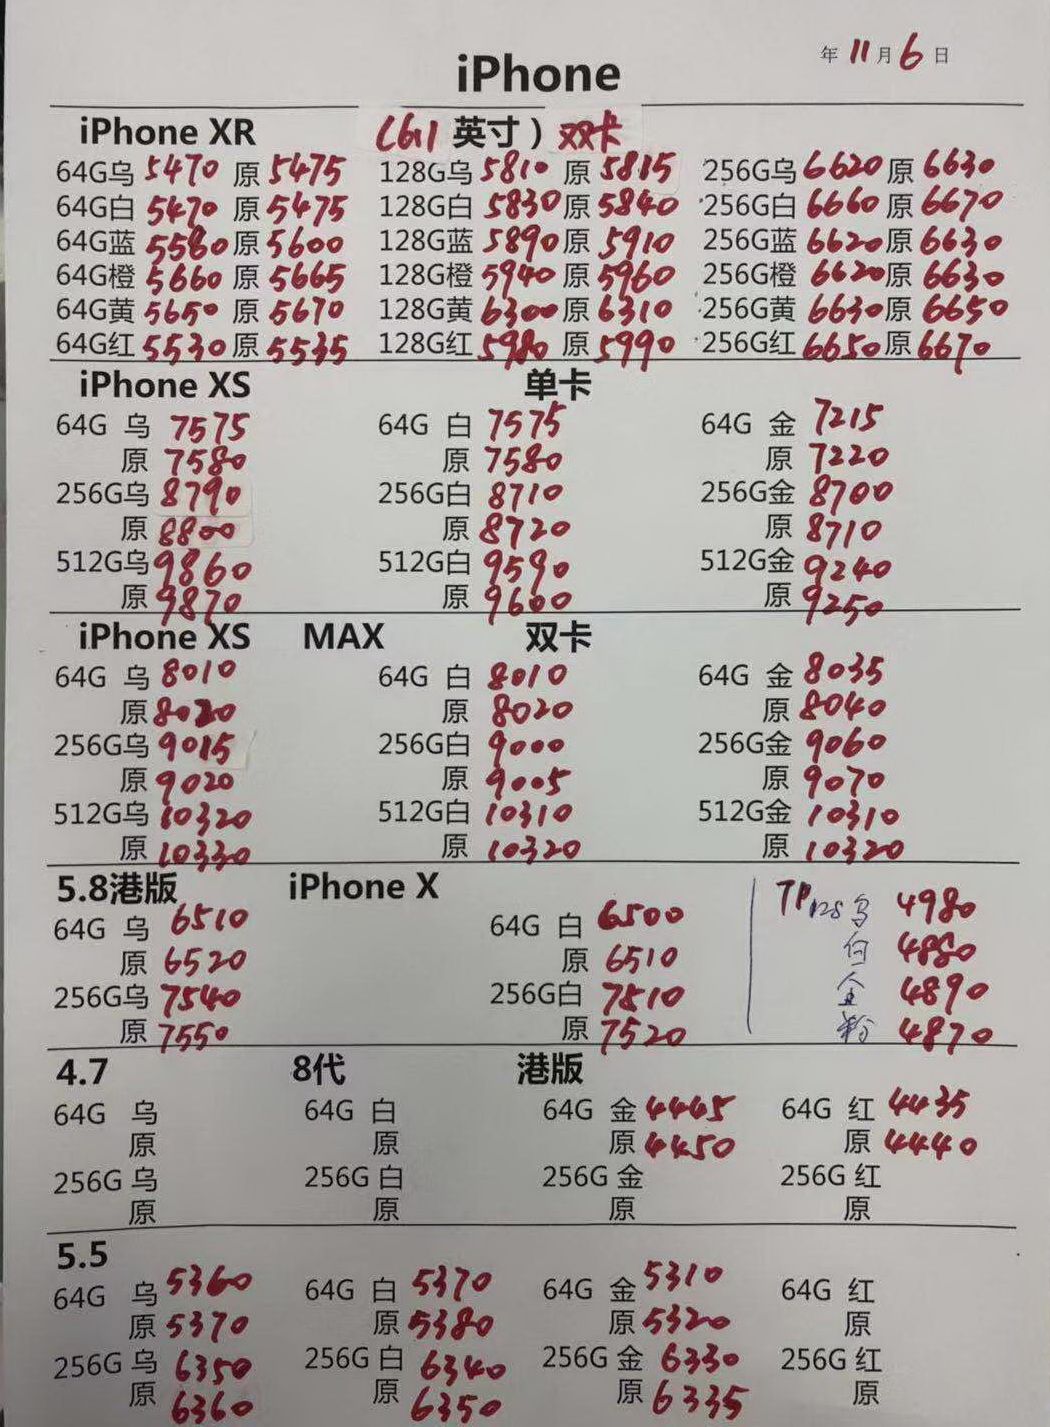 年11月6日
iPhone
iPhone XR (6.1 英寸) 双卡
64G乌 5470 原 5475 128G乌 5810 原 5815 256G乌 6620 原 6630
64G白 5470 原 5475 128G白 5830 原 5840 256G白 6660 原 6670
64G蓝 5580 原 5600 128G蓝 5890 原 5910 256G蓝 6620 原 6630
64G橙 5660 原 5665 128G橙 5940 原 5960 256G橙 6620 原 6630
64G黄 5650 原 5670 128G黄 6300 原 6310 256G黄 6630 原 6650
64G红 5530 原 5535 128G红 5980 原 5990 256G红 6650 原 6670
iPhone XS 单卡
64G 乌 7575 64G 白 7575 64G 金 7215
原 7580 原 7580 原 7220
256G乌 8790 256G白 8710 256G金 8700
原 8800 原 8720 原 8710
512G乌 9860 512G白 9590 512G金 9240
原 9870 原 9600 原 9250
iPhone XS MAX 双卡
64G 乌 8010 64G 白 8010 64G 金 8035
原 8020 原 8020 原 8040
256G乌 9015 256G白 9000 256G金 9060
原 9020 原 9005 原 9070
512G乌 10320 512G白 10310 512G金 10310
原 10330 原 10320 原 10320
5.8港版 iPhone X 7P 128 乌 4980
64G 乌 6510 64G 白 6500 白 4880
原 6520 原 6510 金 4890
256G乌 7540 256G白 7510 粉 4870
原 7550 原 7520
4.7 8代 港版
64G 乌 64G 白 64G 金 4445 64G 红 4435
原 原 原 4450 原 4440
256G 乌 256G 白 256G 金 256G 红
原 原 原 原
5.5
64G 乌 5360 64G 白 5370 64G 金 5310 64G 红
原 5370 原 5380 原 5320 原
256G 乌 6350 256G 白 6340 256G 金 6330 256G 红
原 6360 原 6350 原 6335 原